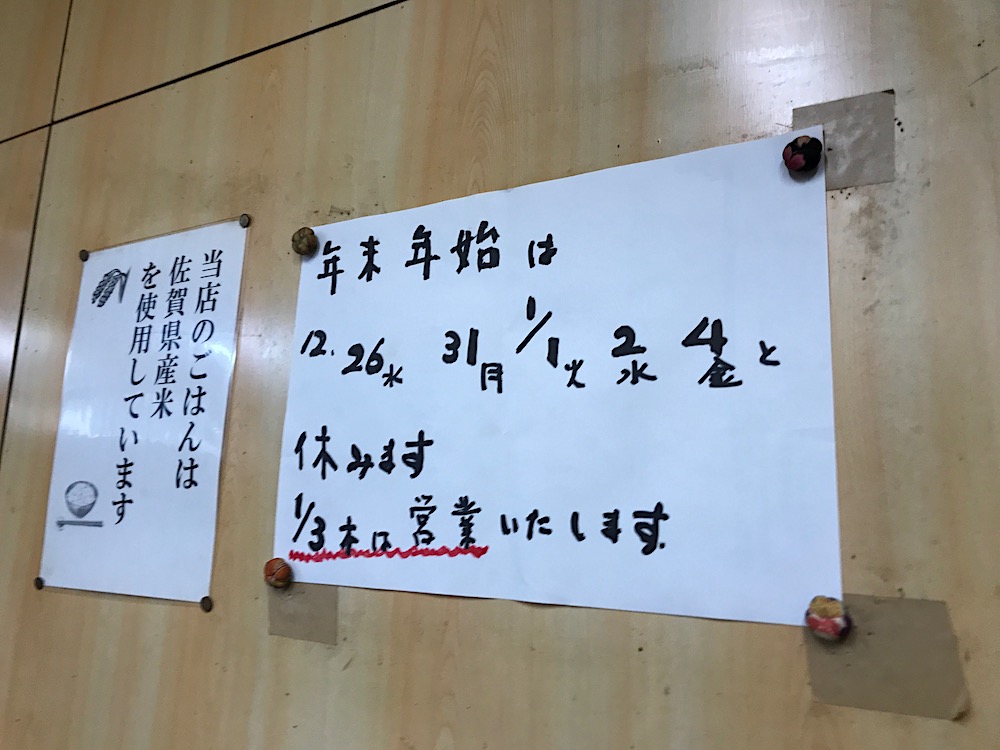 当店のごはんは
佐賀県産米
を使用しています
年末年始は
12.26水 31月 1/1火 2水 4金と
休みます
1/3木は営業いたします